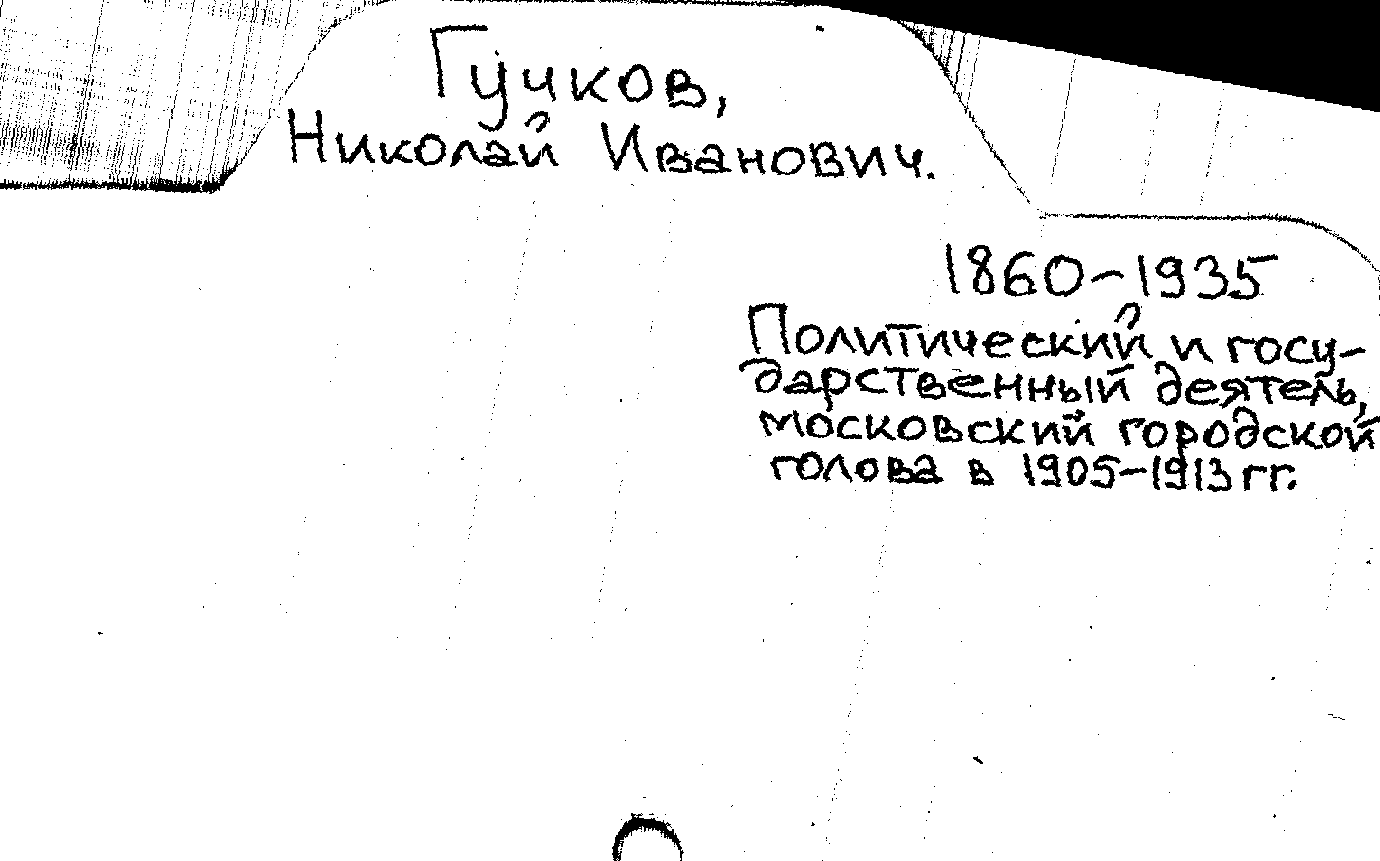 Гучков,
Николай Иванович.
1860-1935
Политический и госу-
дарственный деятель,
московский городской
голова в 1905-1913 гг.